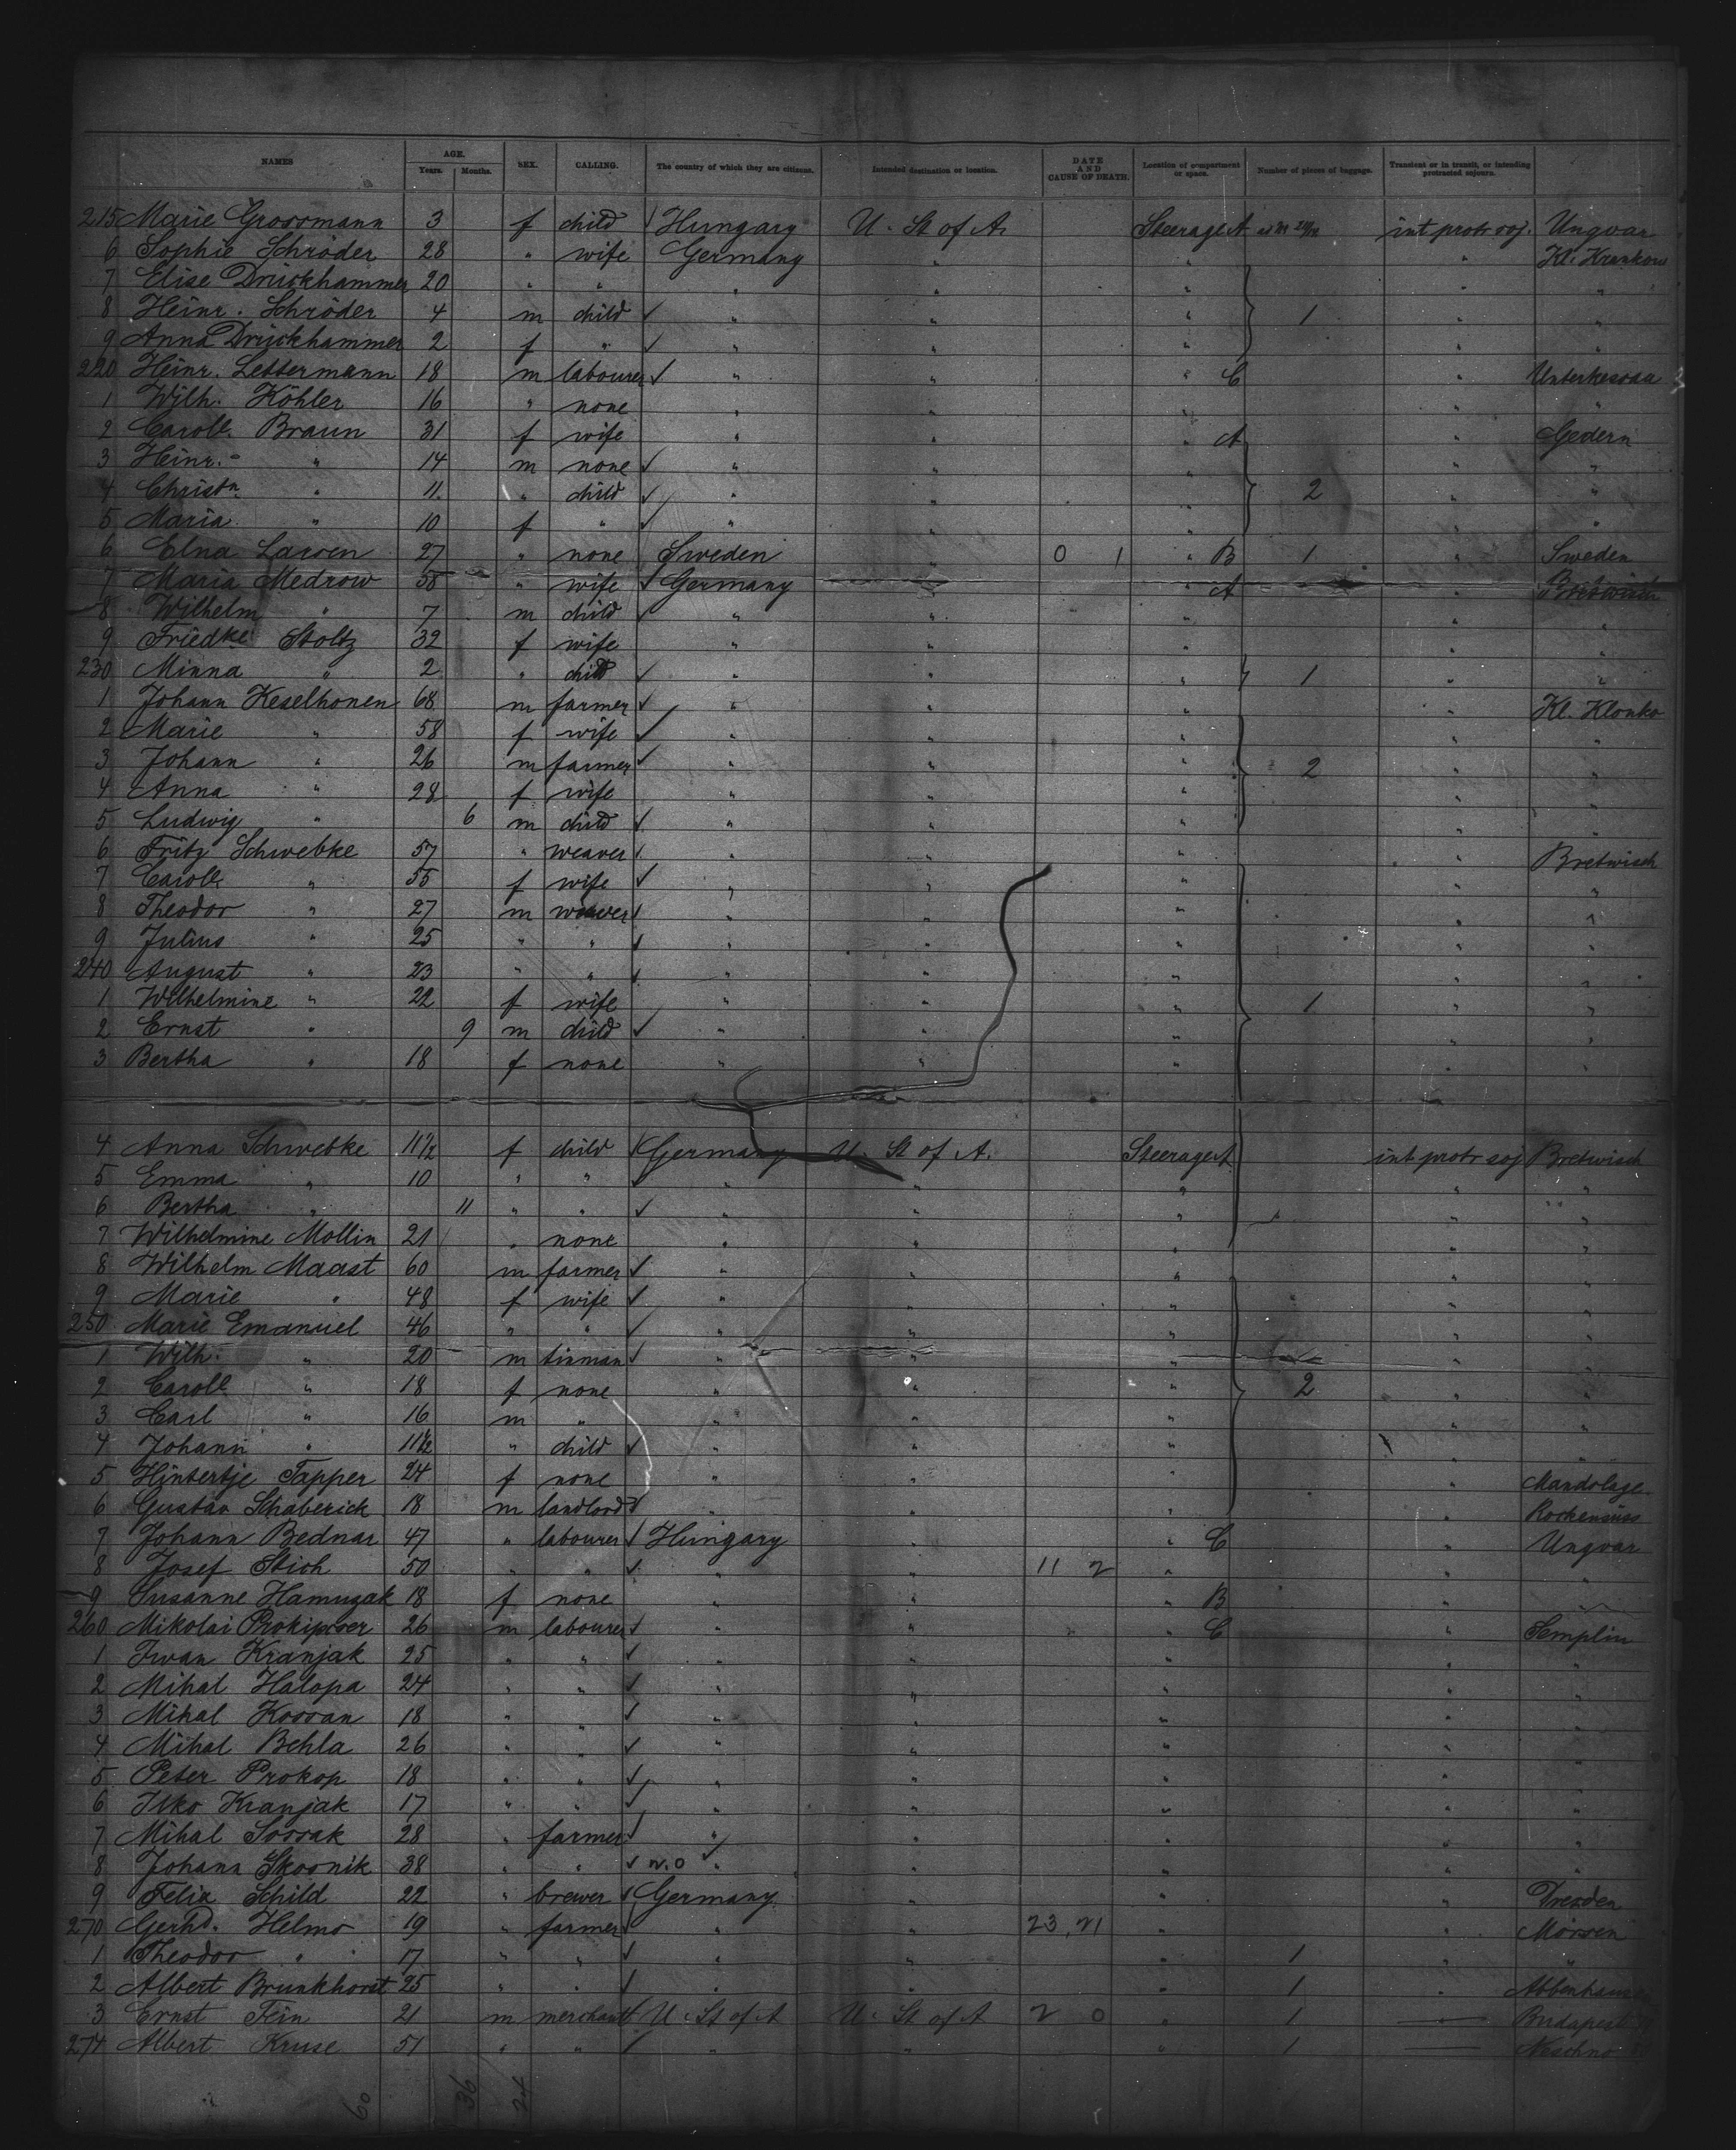 NAMES AGE. Years. Months. SEX. CALLING. The country of which they are citizens. Intended destination or location. DATE AND CAUSE OF DEATH. Location of compartment or space. Number of pieces of baggage. Transient or in transit, or intending protracted sojourn.
215 Marie Grossmann 3 f child Hungary U. St of A. Steerage A int protr soj. Ungvar
6 Sophie Schröder 28 " wife Germany " " " Kl. Krankow
7 Elise Drückhammer 20 " " " " " " "
8 Heinr. Schröder 4 m child " " " 1 " "
9 Anna Drückhammer 2 f " " " " " "
220 Heinr. Lettermann 18 m labourer " " " C "
1 Wilh. Köhler 16 " none " " " " "
2 Carole Braun 31 f wife " " " A " Gedern
3 Heinr. " 14 m none " " " " "
4 Christn " 11 " child " " " 2 " "
5 Maria " 10 f " " " " " "
6 Elna Larsen 27 " none Sweden " 0 1 " B 1 " Sweden
7 Maria Medrow 58 " wife Germany " " A " Bretwisch
8 Wilhelm " 7 m child " " " " "
9 Friedke Stoltz 32 f wife " " " " "
230 Minna " 2 " child " " " 1 " "
1 Johann Keselhonen 68 m farmer " " " " Kl. Klonko
2 Marie " 58 f wife " " " " "
3 Johann " 26 m farmer " " " 2 " "
4 Anna " 28 f wife " " " " "
5 Ludwig " 6 m child " " " " "
6 Fritz Schwebke 57 " weaver " " " " Bretwisch
7 Carole " 55 f wife " " " " "
8 Theodor " 27 m weaver " " " " "
9 Julius " 25 " " " " " " "
240 August " 23 " " " " " " "
1 Wilhelmine " 22 f wife " " " 1 " "
2 Ernst " 9 m child " " " " "
3 Bertha " 18 f none " " " " "
4 Anna Schwebke 11½ f child Germany U. St of A. Steerage A int protr soj Bretwisch
5 Emma " 10 " " " " " " "
6 Bertha " 11 " " " " " " "
7 Wilhelmine Mollin 21 " none " " " " "
8 Wilhelm Maast 60 m farmer " " " " "
9 Marie " 48 f wife " " " " "
250 Marie Emanuel 46 " " " " " " "
1 Wilh. " 20 m tinman " " " " "
2 Carole " 18 f none " " " 2 " "
3 Carl " 16 m " " " " " "
4 Johann " 11½ " child " " " " "
5 Hintertje Tapper 24 f none " " " "
6 Gustav Schaberick 18 m landlord " " " " Rockensüss
7 Johann Bednar 47 " labourer Hungary " " C " Ungvar
8 Josef Stich 50 " " " " 11 2 " " "
9 Susanne Hamuzak 18 f none " " " B " "
260 Mikolai 26 m labourer " " " C " Semplin
1 Iwan Kranjak 25 " " " " " " "
2 Mihal Halopa 24 " " " " " " "
3 Mihal Kossan 18 " " " " " " "
4 Mihal Behla 26 " " " " " " "
5 Peter Prokop 18 " " " " " " "
6 Ilko Kranjak 17 " " " " " " "
7 Mihal Sossak 28 " farmer " " " " "
8 Johann Skosnik 38 " " " " " " "
9 Felix Schild 22 " brewer Germany " " " Dresden
270 Gerhd. Helms 19 " farmer " " 23,21 " " Mörsen
1 Theodor " 17 " " " " " 1 " "
2 Albert Brunkhorst 25 " " " " " 1 "
3 Ernst Fein 21 m merchant U. St of A U. St of A 2 0 " 1 Budapest
274 Albert Kruse 51 " " " " " 1
60 36 24